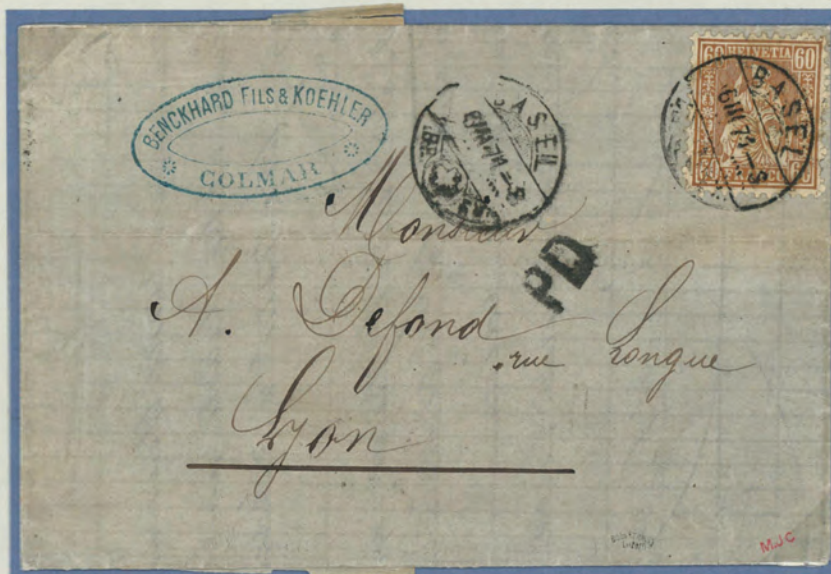 BENCKHARD FILS & KOEHLER
COLMAR
BASEL
60 HELVETIA 60
BASEL
6 III 73
PD
Monsieur
A. Defond
rue Longue
Lyon
MJC